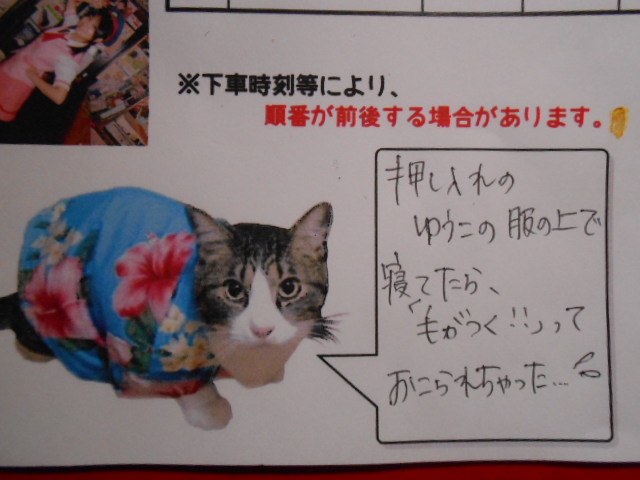 ※下車時刻等により、
順番が前後する場合があります。
押し入れの
ゆうこの服の上で
寝てたら、
「毛がつく!!」って
おこられちゃった…